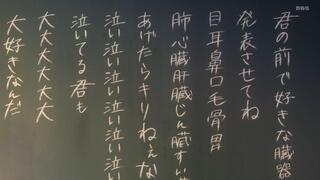 君の前で好きな臓器
発表させてね
目耳鼻口毛骨胃
肺心臓肝臓じん臓すい
あげたらきりねぇな
泣い泣い泣い泣い泣い
泣いてる君も
大大大大大大
大好きなんだ